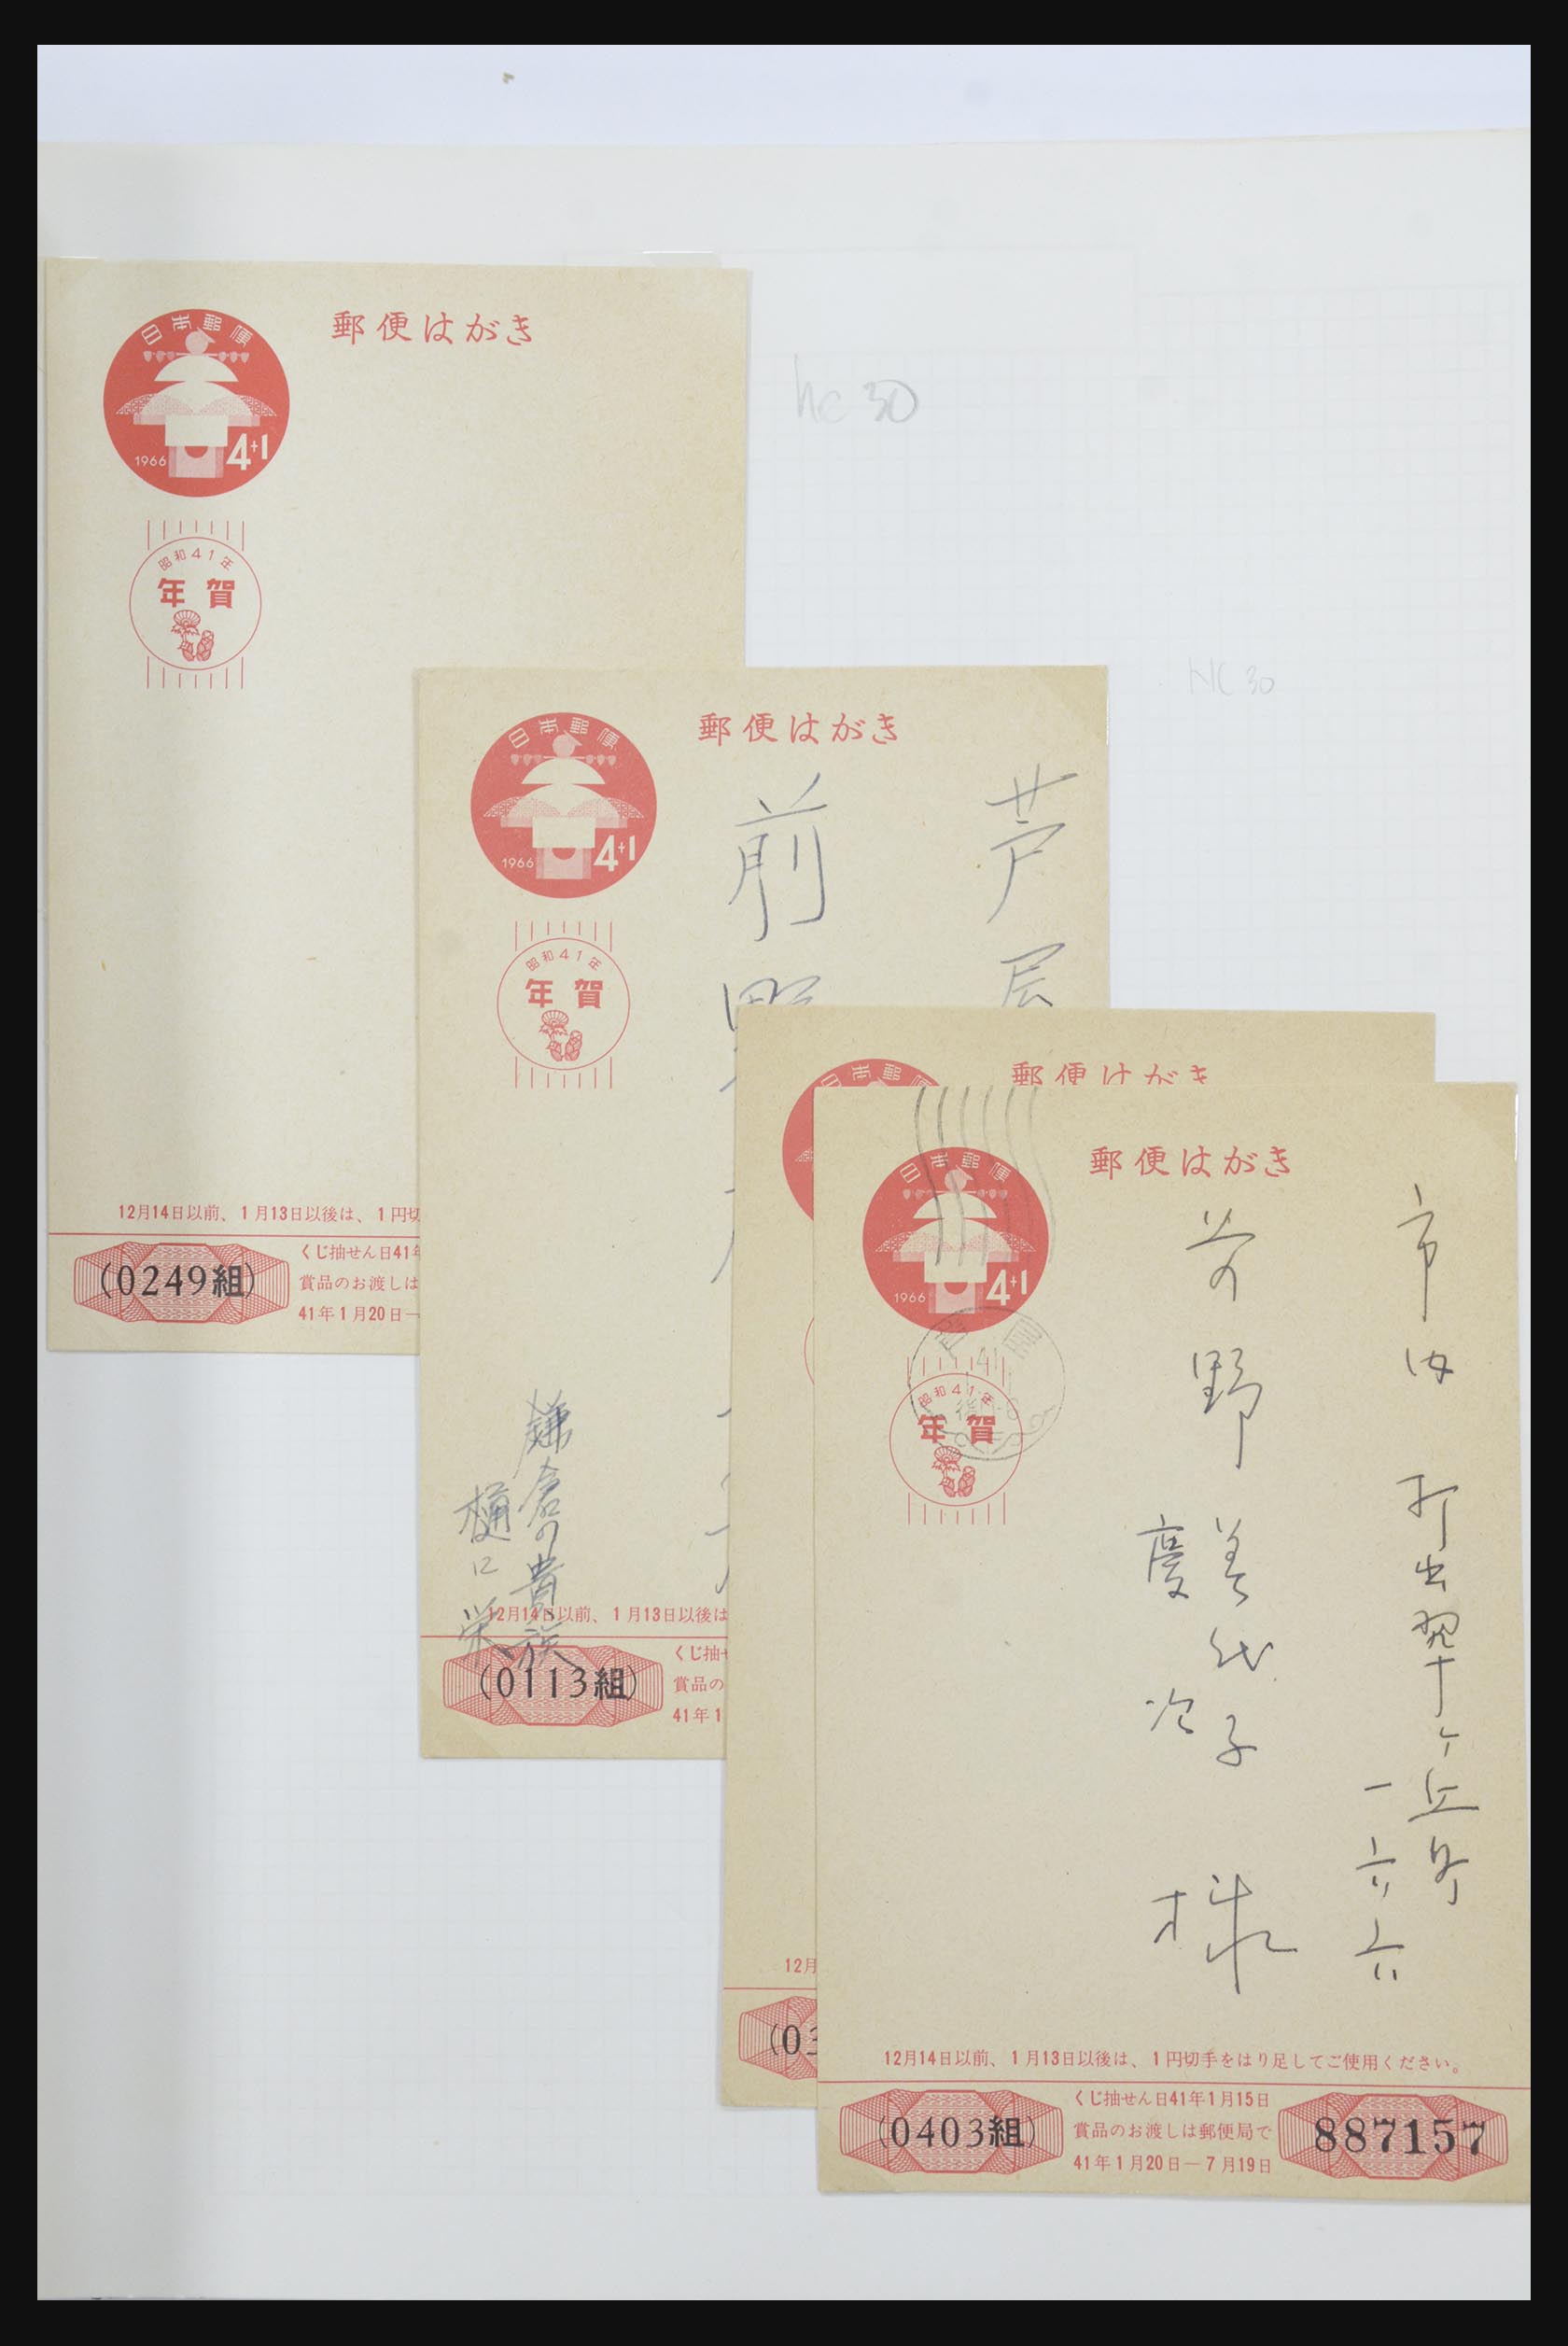 郵便はがき
日本郵便
1966 4+1
昭和41年
年賀
12月14日以前、1月13日以後は、1円切
(0249組)
くじ抽せん日41年
賞品のお渡しは
41年1月20日―
hc 30
NC 30
郵便はがき
日本郵便
1966 4+1
昭和41年
年賀
芦屋
前野
鎌倉の貴族
樋口栄
12月14日以前、1月13日以後は
(0113組)
くじ抽せ
賞品の
41年1
日本郵便
郵便はがき
12月
(03
郵便はがき
日本郵便
1966 4+1
昭和41年
年賀
市内 打出翠ヶ丘町
一六六
野 美代子
慶次
様
12月14日以前、1月13日以後は、1円切手をはり足してご使用ください。
(0403組)
くじ抽せん日41年1月15日
賞品のお渡しは郵便局で
41年1月20日―7月19日
887157